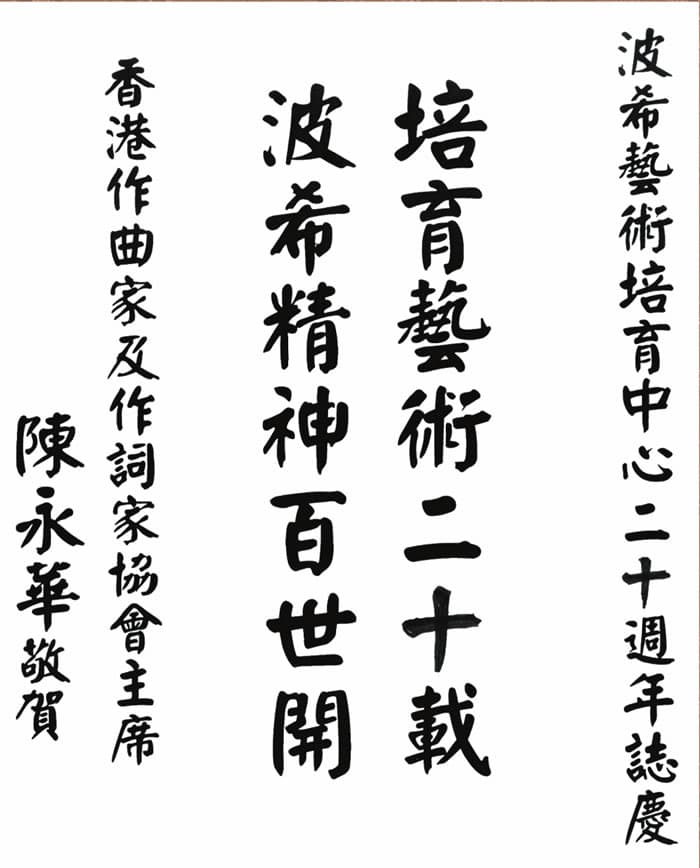 波希藝術培育中心二十週年誌慶
培育藝術二十載
波希精神百世開
香港作曲家及作詞家協會主席
陳永華敬賀